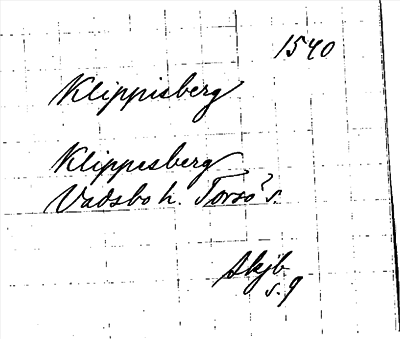 1540
Klippisberg
Klippesberg
Vadsbo h. Torsö? s.
skjb
s. 9